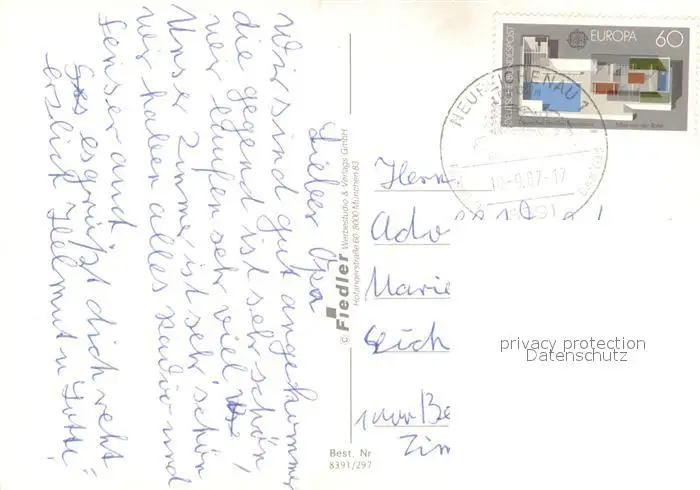 Lieber Opa
Wir sind gut angekommen
die gegend ist sehr schön,
wir laufen sehr viel
Unser Zimmer ist sehr schön
wir haben alles Radio und
Fenser and
es grüßt dich recht
erzlich Helmut u Jutta
© Fiedler Werbestudio & Verlags GmbH
Hofangerstraße 60 · 8000 München 83
Best. Nr
8391/297
DEUTSCHE BUNDESPOST
EUROPA 60
NEUREICHENAU
10-9.87-17
8391
Herrn
Ado
Marie
1000 Be
Zim
privacy protection
Datenschutz